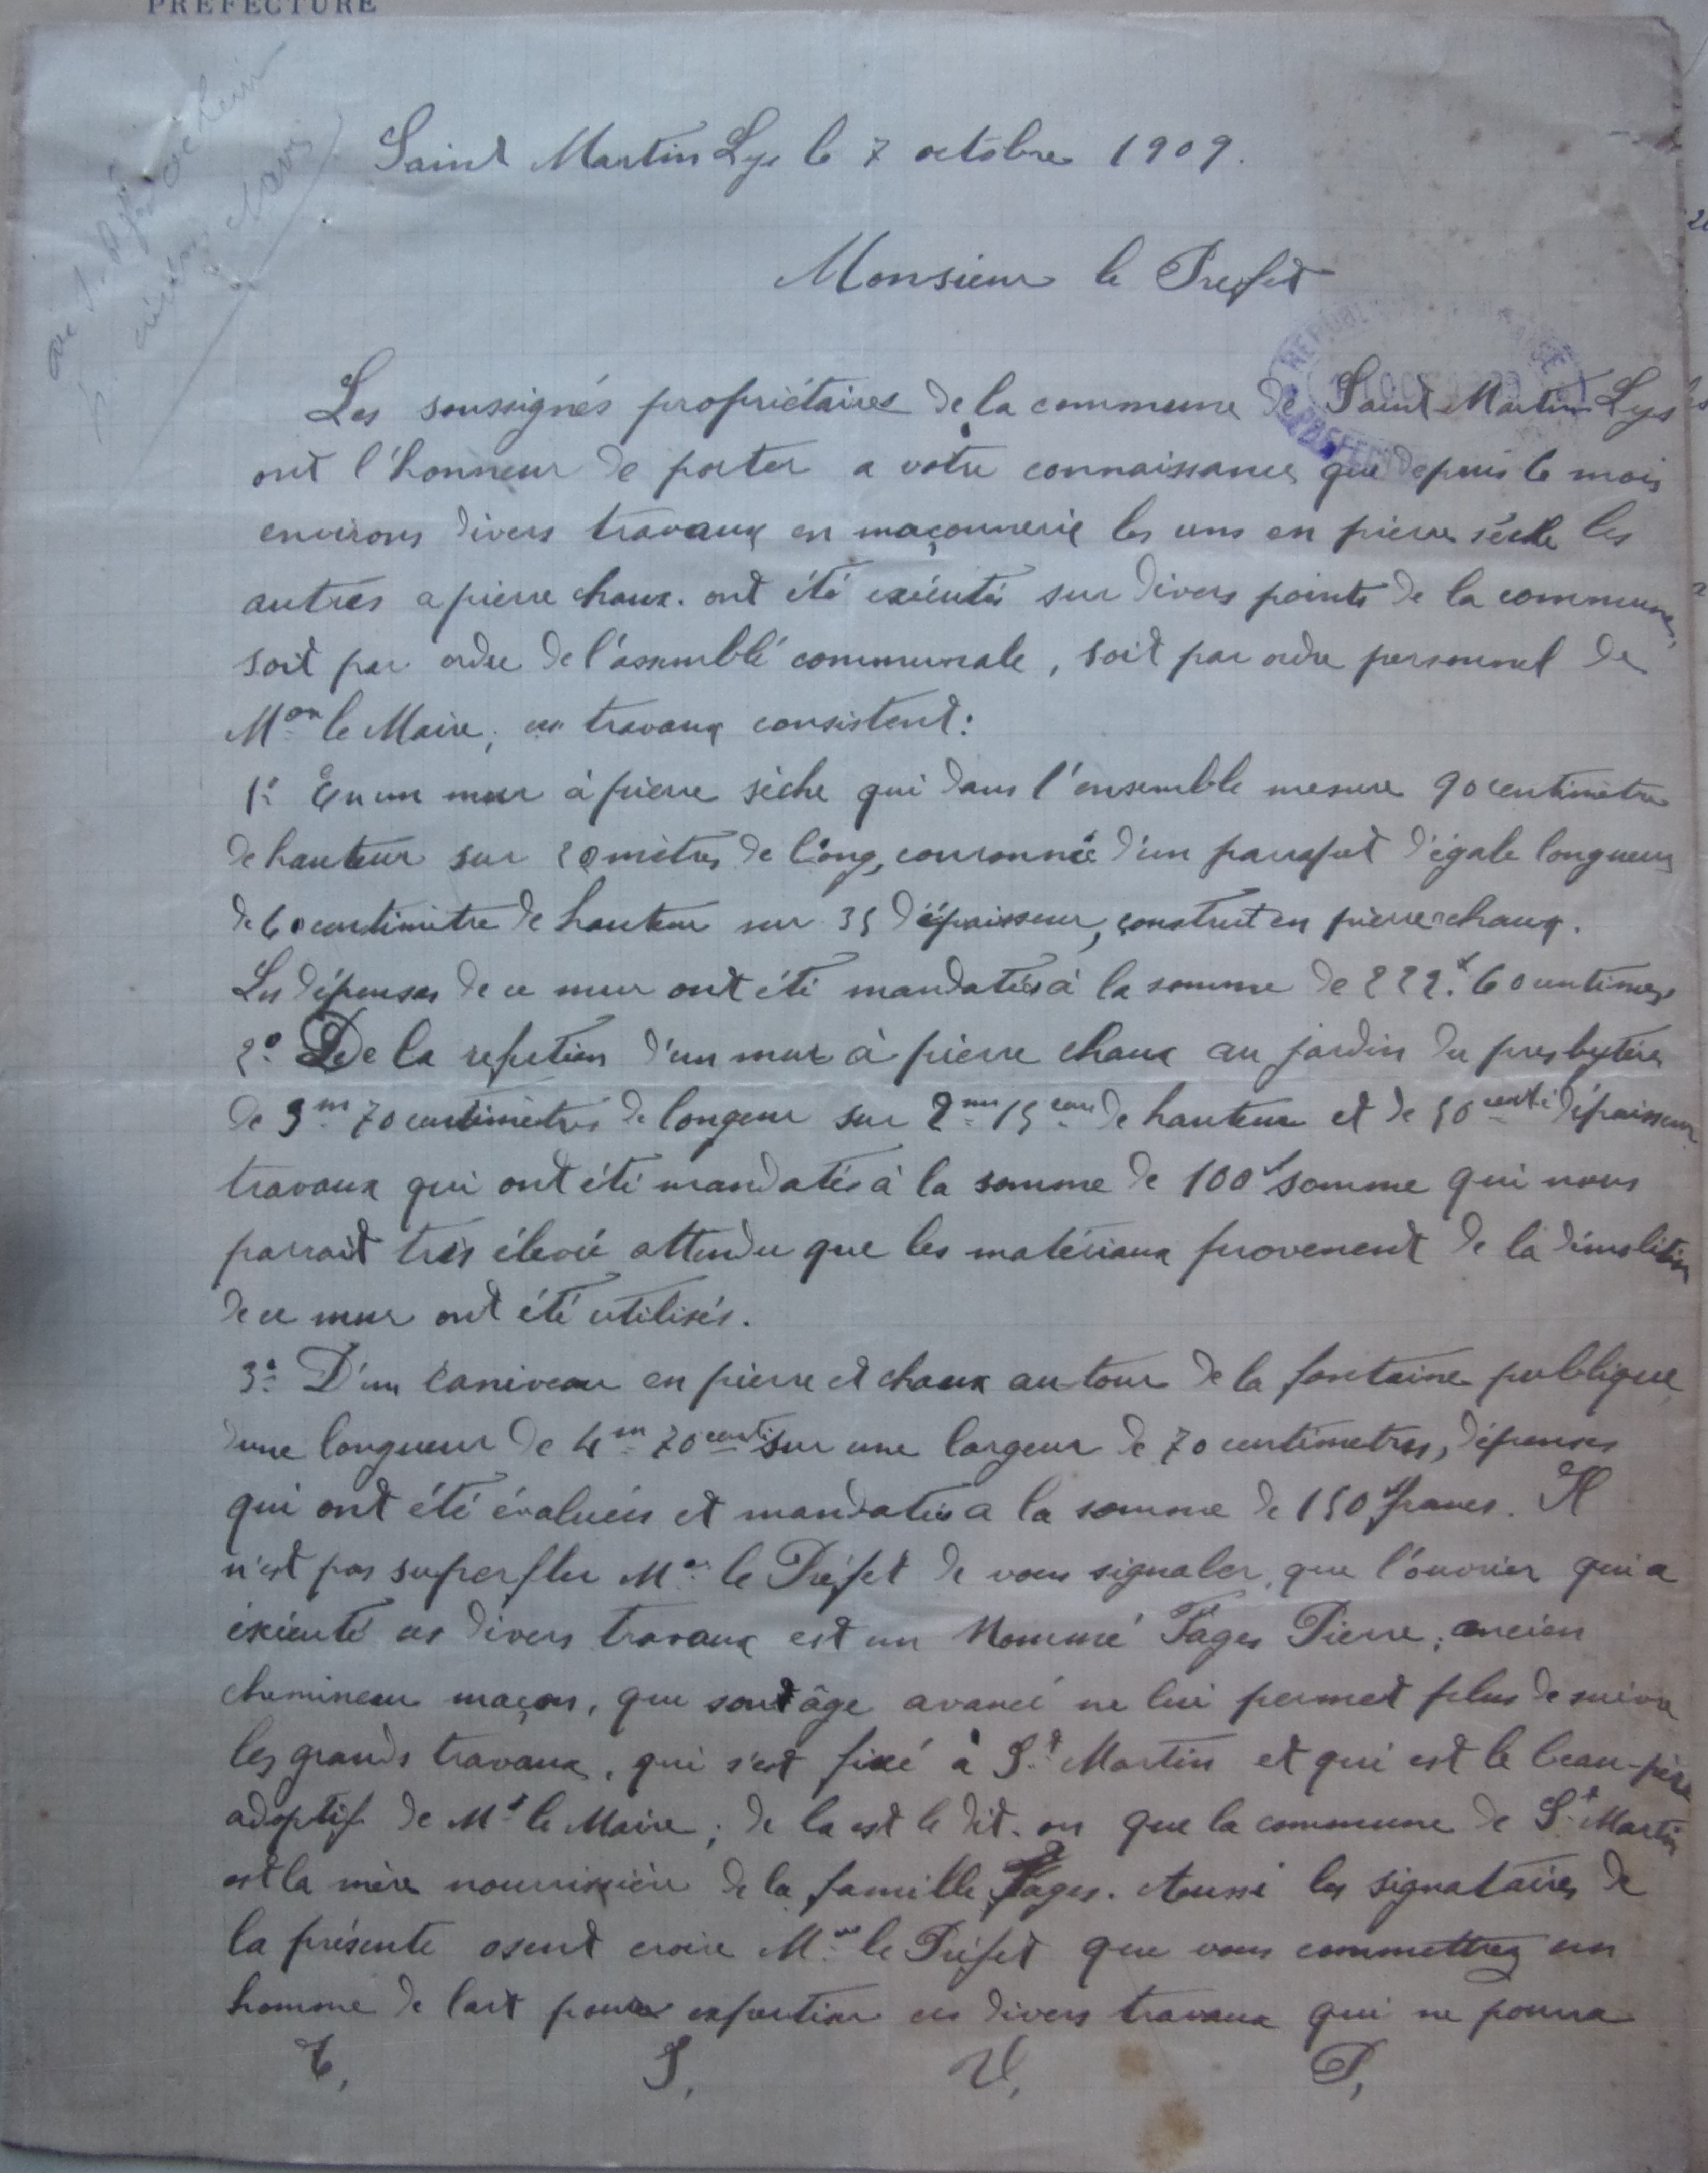 PRÉFECTURE
Saint Martin Lys le 7 octobre 1909.
Monsieur le Prefet
Les soussignés propriétaires de la commune de Saint Martin Lys
ont l'honneur de porter a votre connaissance que depuis 6 mois
environs divers travaux en maçonnerie les uns en pierre sèche les
autres a pierre chaux. ont été exécutés sur divers points de la commune,
soit par ordre de l'assemblé communale, soit par ordre personnel de
Mon le Maire; ces travaux consistent:
1º En un mur à pierre sèche qui dans l'ensemble mesure 90 centimètre
de hauteur sur 20 mètres de long, couronnée d'un parrapet d'égale longueur
de 60 centimètre de hauteur sur 35 d'épaisseur, construit en pierre chaux.
Les dépenses de ce mur ont été mandatées à la somme de 222f 60 centimes
2º De la refection d'un mur à pierre chaux au jardin du presbytère
de 3m 70 centimètres de longeur sur 2m 15 cen de hauteur et de 50 centi d'épaisseur
travaux qui ont été mandatés à la somme de 100f somme qui nous
parrait très élevée attendu que les matériaux provenent de la démolition
de ce mur ont été utilisés.
3º D'un caniveau en pierre et chaux autour de la fontaine publique
d'une longueur de 4m 70 centi sur une largeur de 70 centimetres, dépenses
qui ont été évaluées et mandatées a la somme de 150 francs. Il
n'est pas superflu Mr le Préfet de vous signaler que l'ouvrier qui a
éxécuté ces divers travaux est un Nommé Fages Pierre; ancien
chemineau maçon, que sont âge avancé ne lui permet plus de suivre
les grands travaux, qui s'est fixé à St Martin et qui est le beau-père
adoptif de Mr le Maire; de la est le dit-on que la commune de St Martin
est la mère nourricière de la famille Fages. Aussi les signataires de
la présente osent croire Mr le Préfet que vous commettrez un
homme de l'art pour expertiser ces divers travaux qui ne pourra
T, S, V, P,